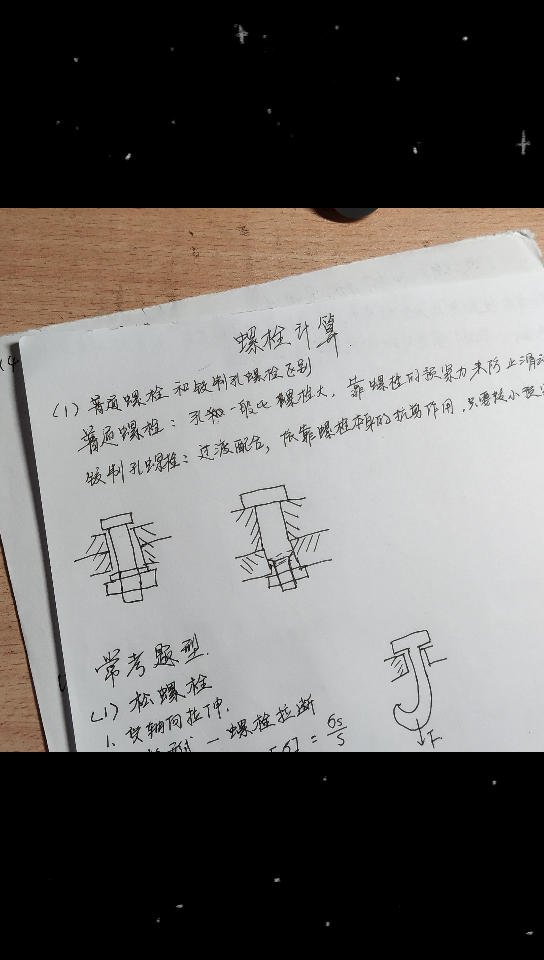 螺栓计算.
(1) 普通螺栓和铰制孔螺栓区别
普通螺栓：孔 一般比螺栓大，靠螺栓的预紧力来防止滑动
铰制孔螺栓：过渡配合，依靠螺栓本身的抗剪作用，只需较小预
常考题型.
(1) 松螺栓
1. 轴向拉伸.
一螺栓拉断
[σ] = σs/S
F